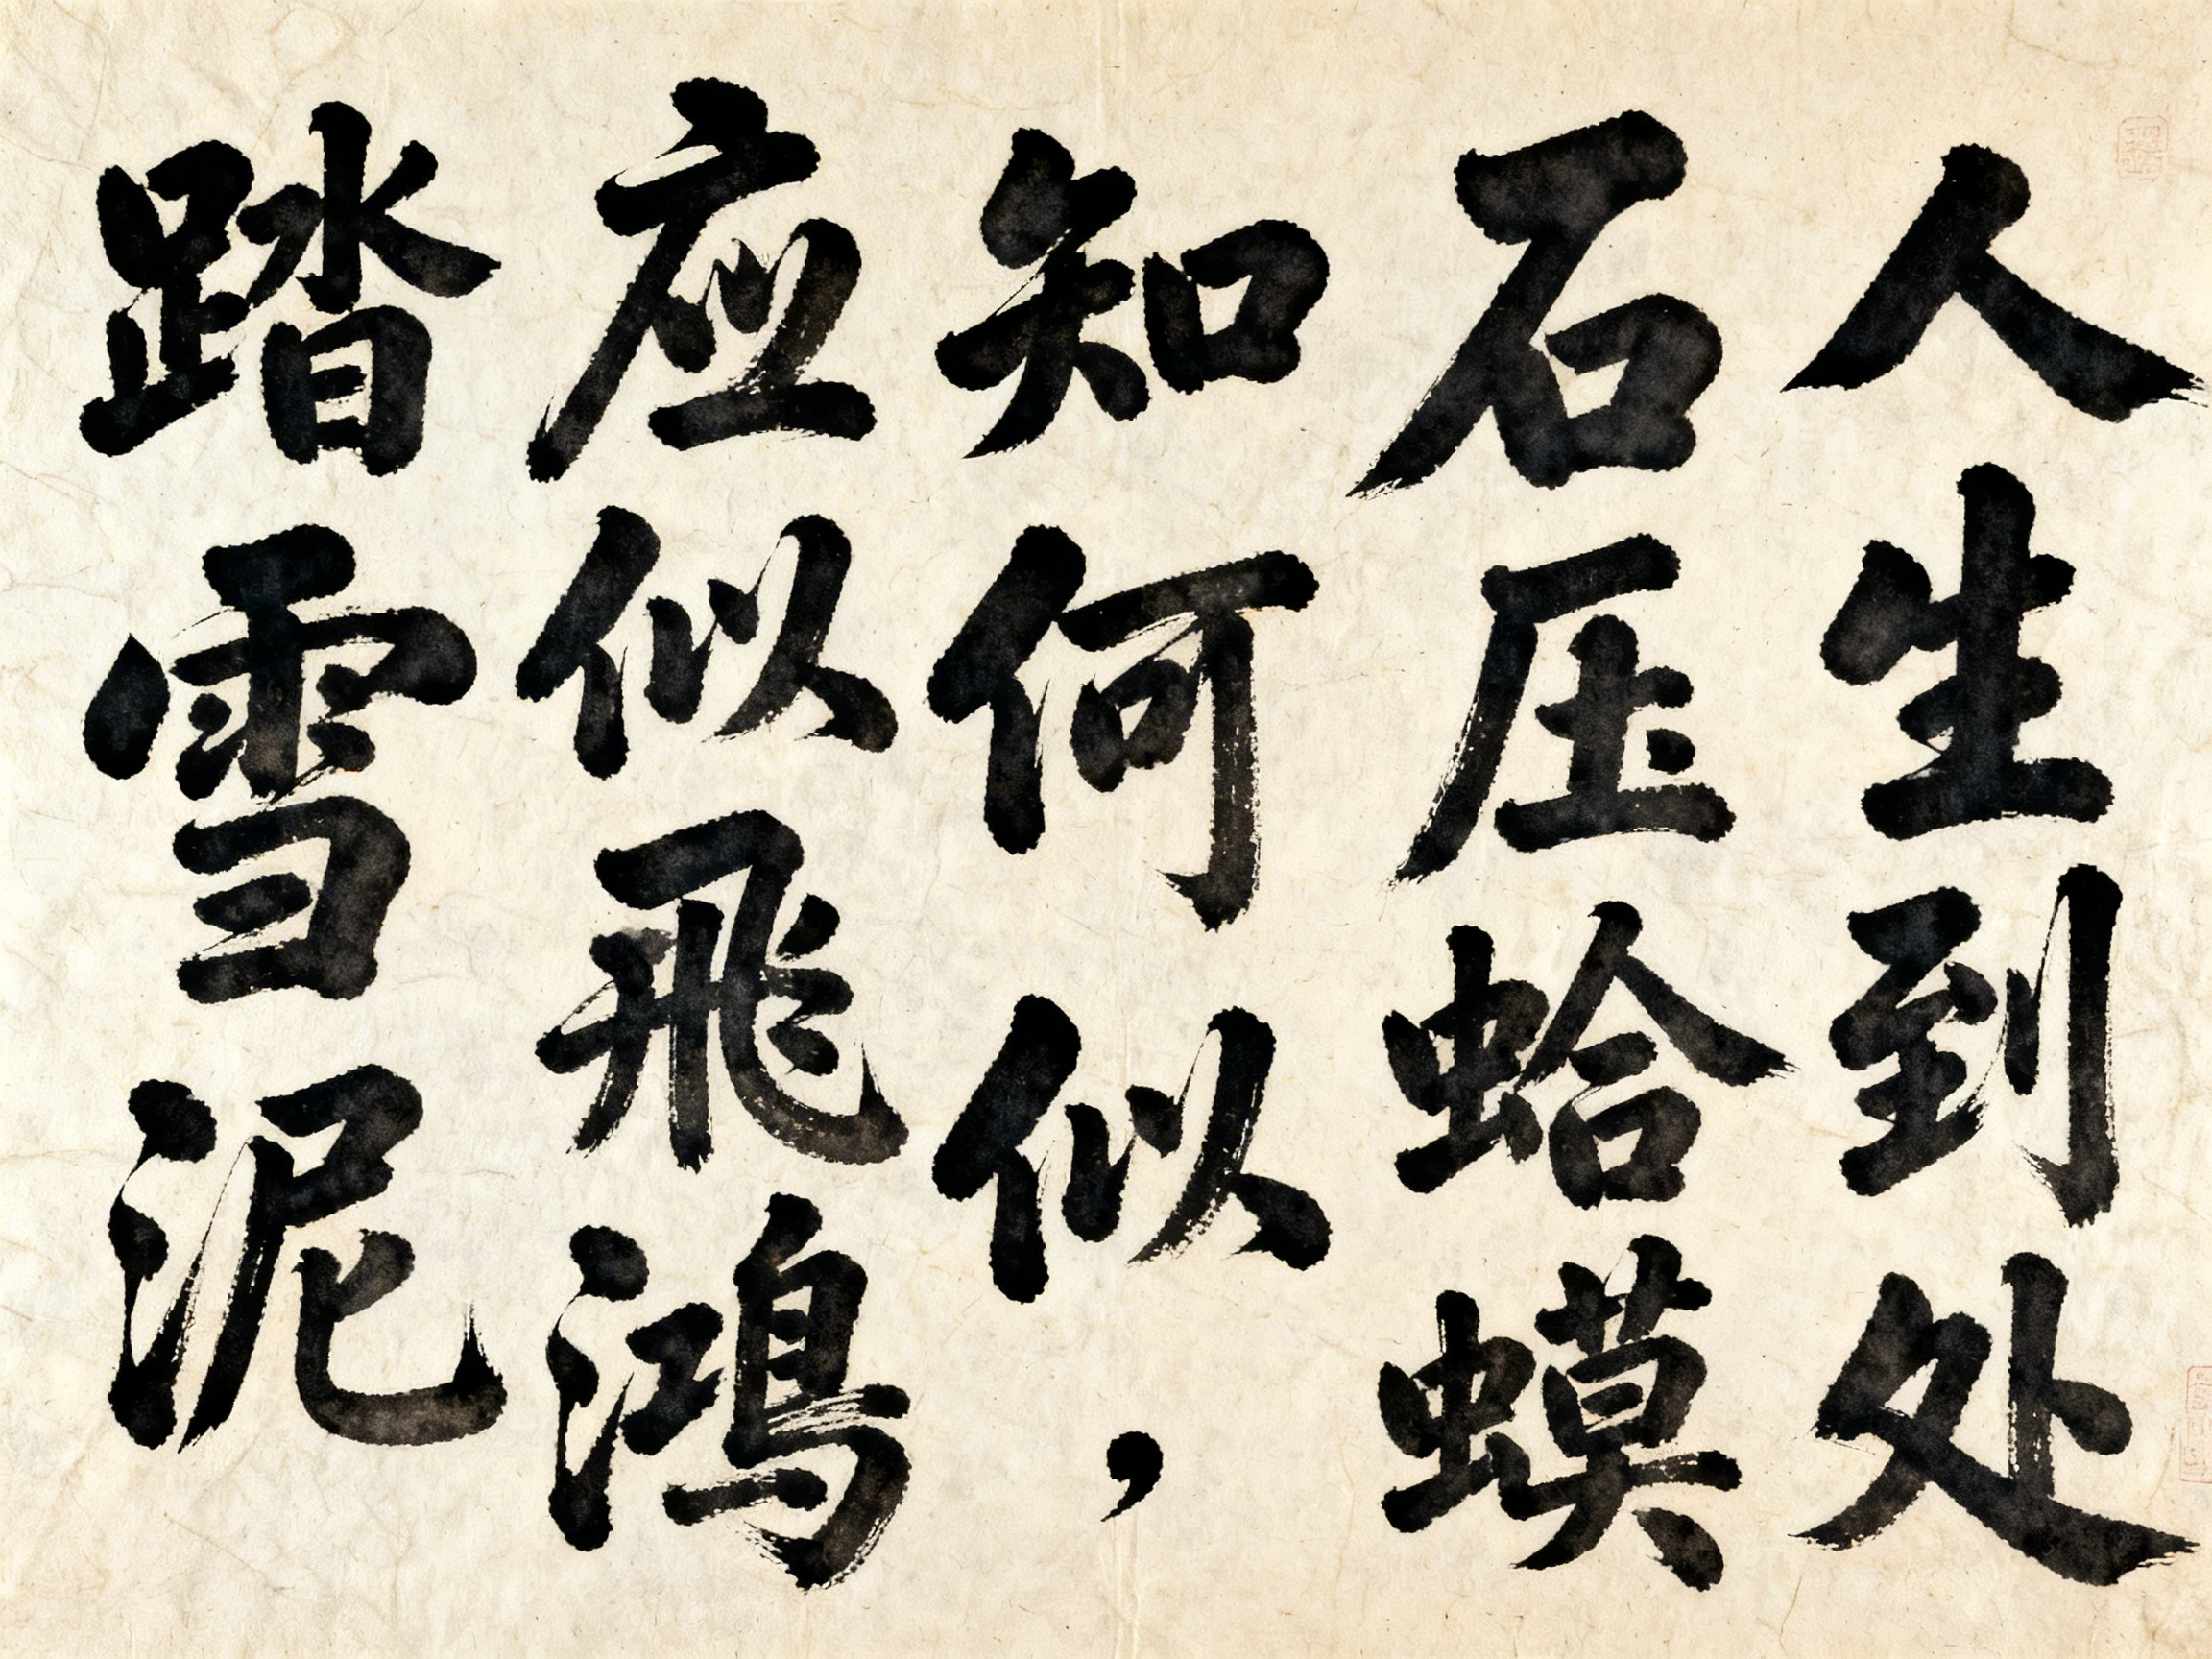 人生到处
石压蛤蟆
知何似，
应似飛鸿
踏雪泥